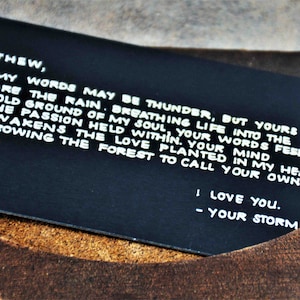 THEW,
MY WORDS MAY BE THUNDER, BUT YOURS
RE THE RAIN. BREATHING LIFE INTO THE
OLD GROUND OF MY SOUL, YOUR WORDS FEE
E PASSION HELD WITHIN. YOUR MIND,
WAKENS THE LOVE PLANTED IN MY HE
ROWING THE FOREST TO CALL YOUR OWN
I LOVE YOU.
- YOUR STORM